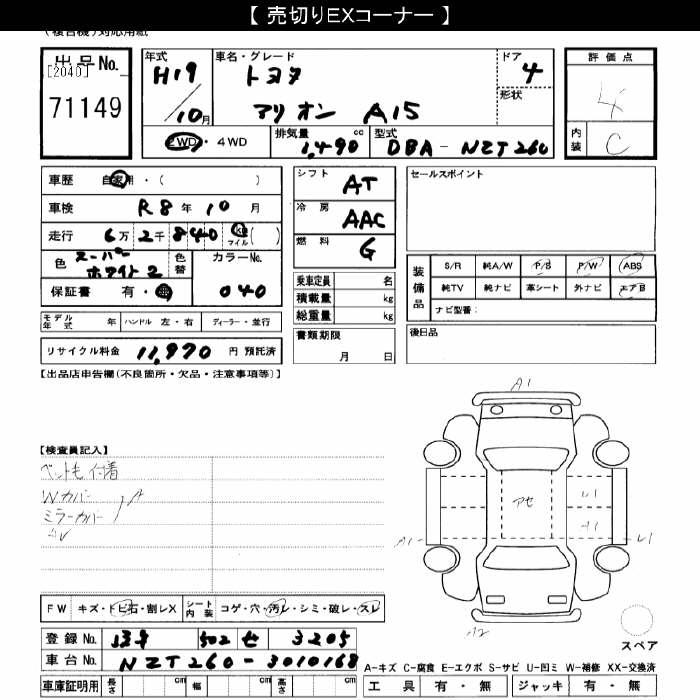 【 売切りEXコーナー 】
(複合機)対応用紙
出品No.
[2040]
71149
年式
H19
/10月
車名・グレード
トヨタ
アリオン A15
ドア
4
形状
評価点
4
内装
C
2WD・4WD
排気量
1,490 cc
型式
DBA-NZT260
車歴 自家用・( )
車検 R8年10月
走行 6万2千840 km マイル( )
色 スーパーホワイト2
色替
カラーNo.
040
保証書 有・無
モデル年式 年 ハンドル 左・右 ディーラー・並行
リサイクル料金 11,970 円 預託済
シフト AT
冷房 AAC
燃料 G
乗車定員 名
積載量 kg
総重量 kg
書類期限
月 日
セールスポイント
装備品
S/R 純A/W P/S P/W ABS
純TV 純ナビ 革シート 外ナビ エアB
ナビ型番:
後日品
【出品店申告欄(不良箇所・欠品・注意事項等)】
【検査員記入】
ペット毛付着
Wカバー
ミラーカバー
A
A1
アセ
A1
U1
U1
U1
A2
スペア
FW キズ・トビ石・割レX
シート内装 コゲ・穴・汚レ・シミ・破レ・スレ
登録No. 502 せ 3205
車台No. NZT260-3010168
車庫証明用 長さ cm 幅 cm 高さ cm
A-キズ C-腐食 E-エクボ S-サビ U-凹ミ W-補修 XX-交換済
工具 有・無 ジャッキ 有・無